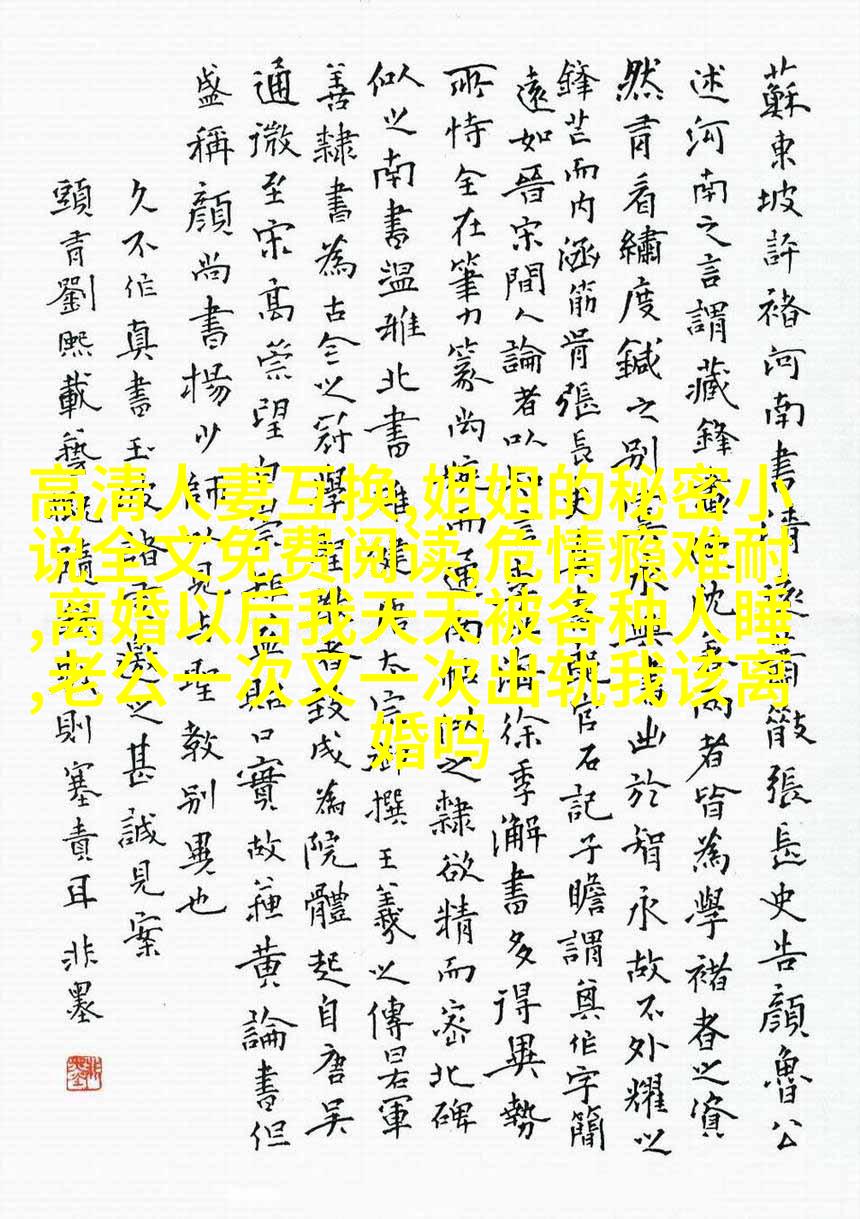 蘇東坡評褚河南書清遠蕭散張長史告顏魯公
述河南之言謂藏鋒畫沈着兩者皆為學褚者之資
然有看繡度鍼之別永興書出於智永故不外耀以
鋒芒而內涵筋骨張長史郎官石記子瞻謂其作字簡
遠如晉宋間人論者以海徐季海書多得異勢
所恃全在筆力篆尚婉而通之隸欲精而密北碑
似之南書溫雅北書雄健唐太宗御撰王羲之傳右軍
善隸書為古今之冠學者致成為院體起自唐吳
通微至宋高崇望白宗口實故蘇黃論書但
盛稱顏尚書楊少師以見與聖教別異也
久不作真書玉之甚誠見案
頭有劉熙載藝概隨則塞責耳非墨
高清人妻互换,姐姐的秘密小
说全文免费阅读,危情瘾难耐
,离婚以后我天天被各种人睡
,老公一次又一次出轨我该离
婚吗